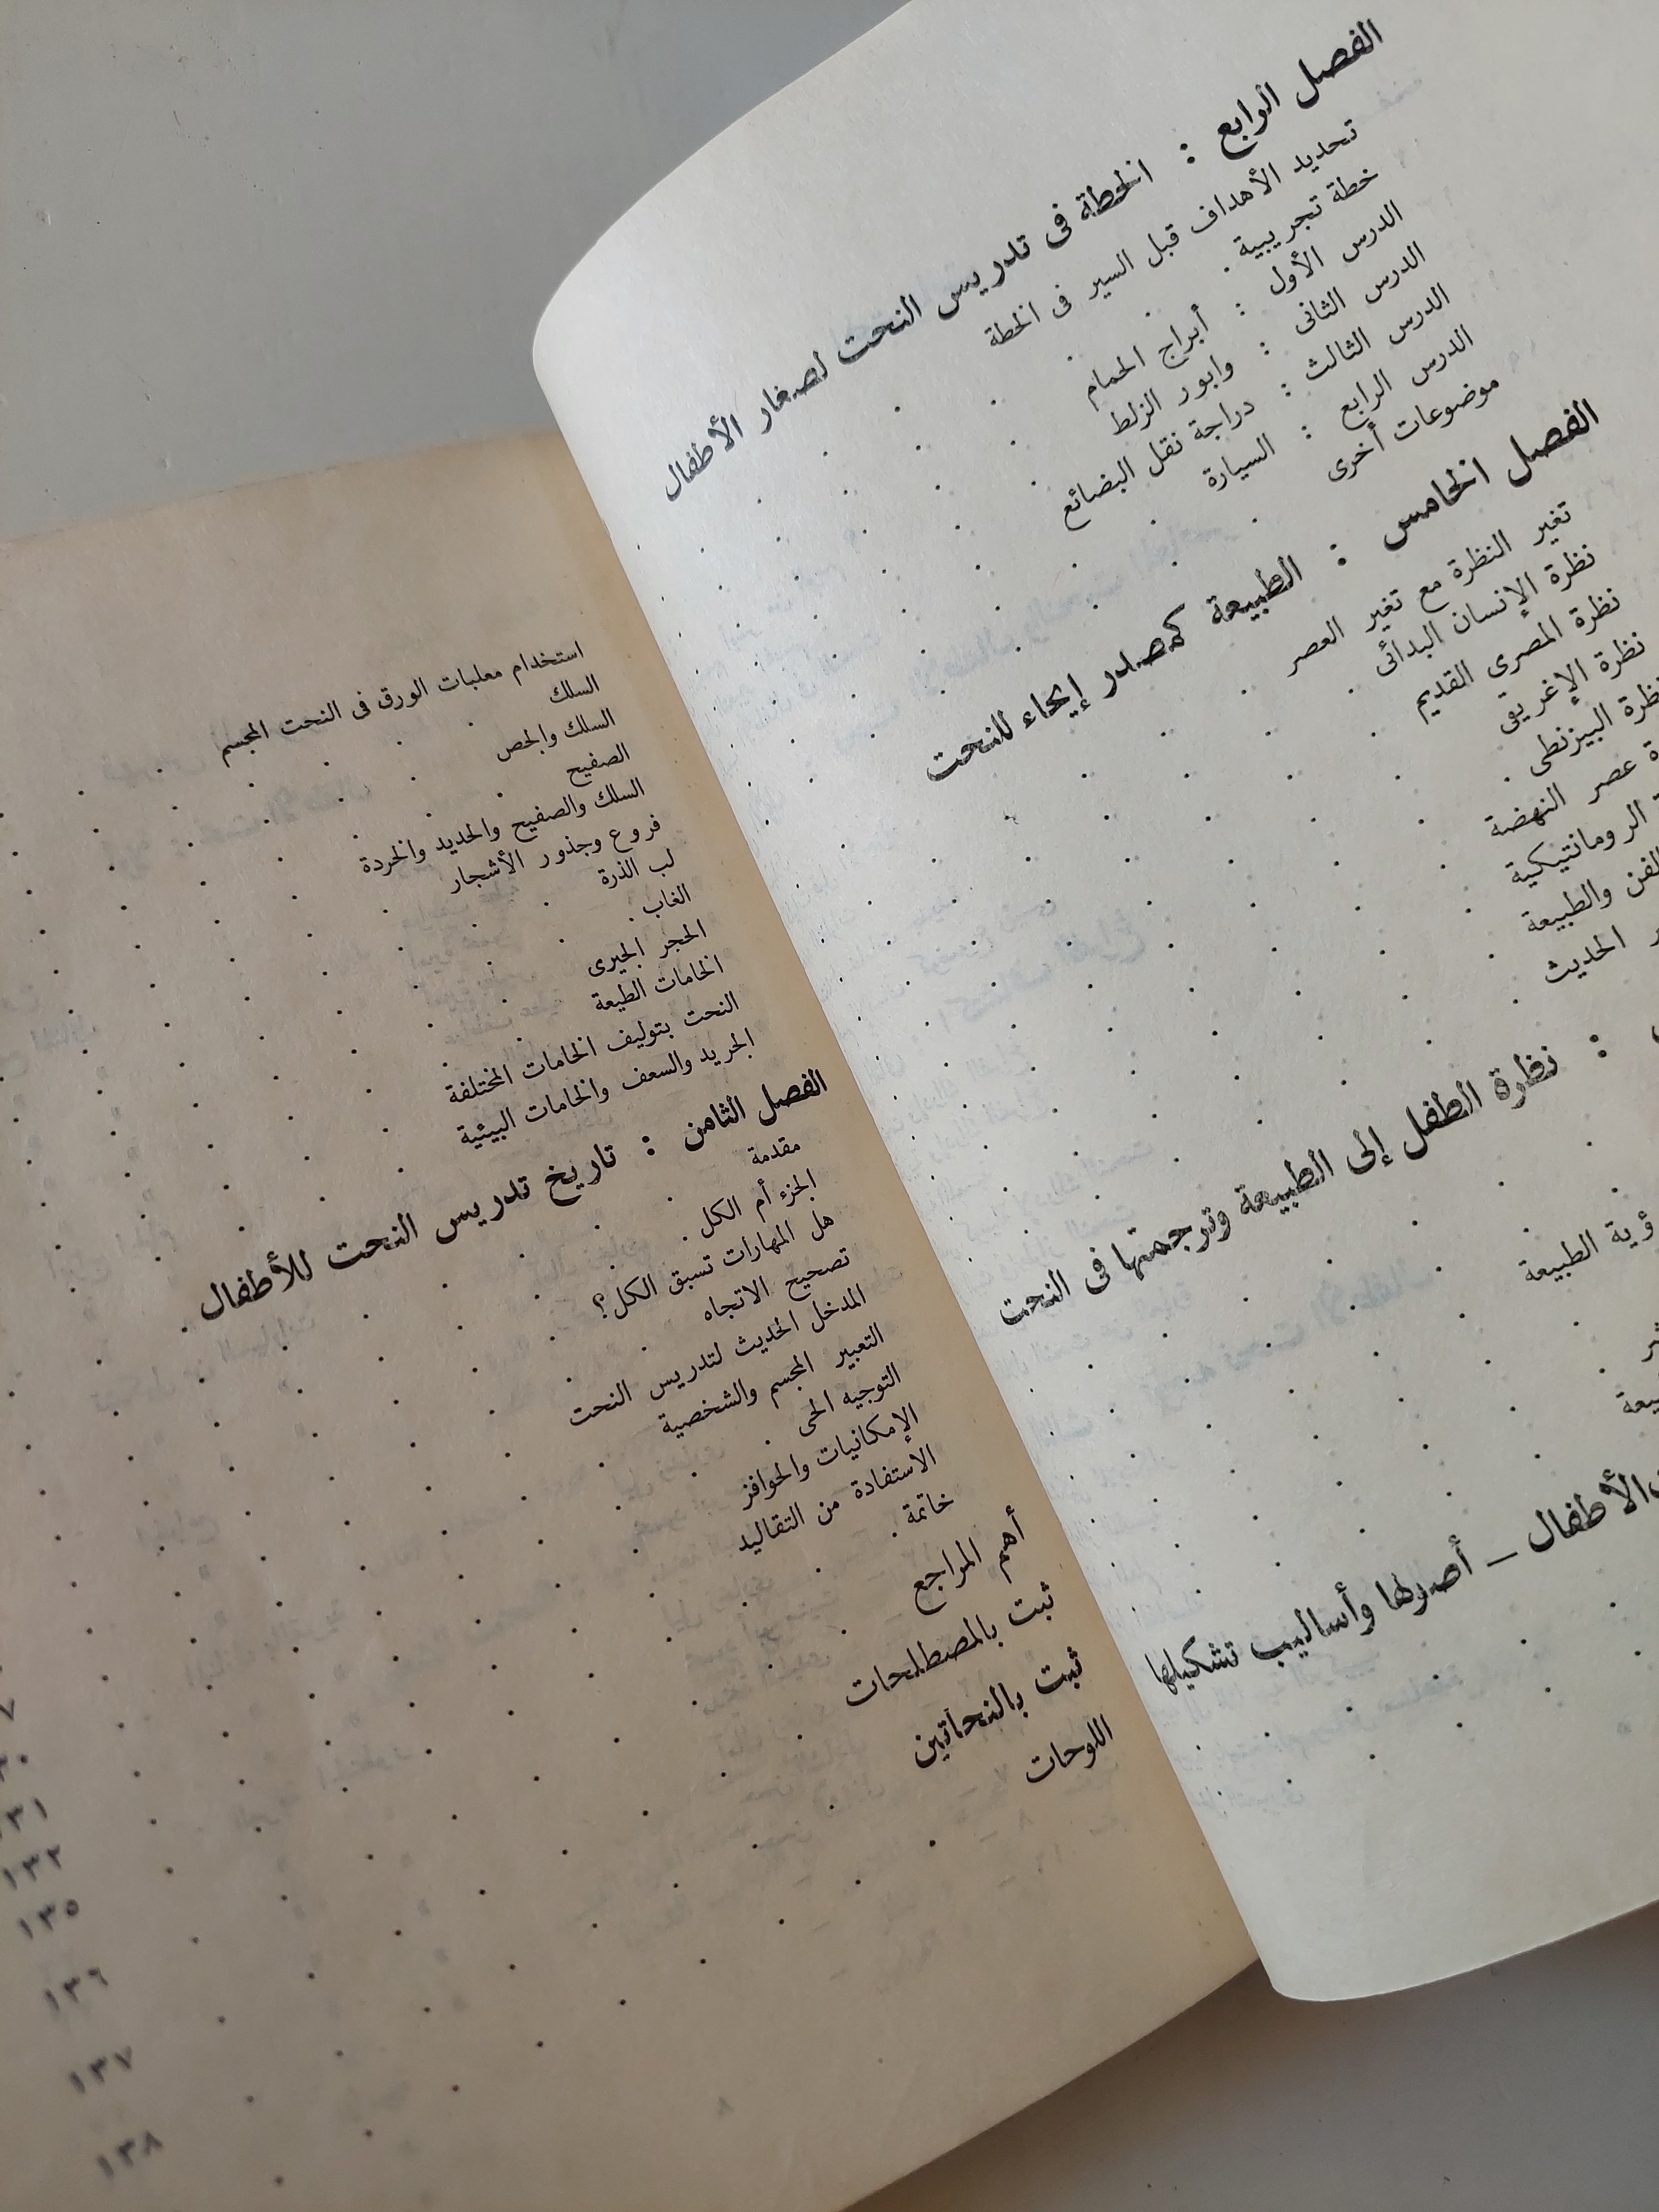 الفصل الرابع : الخطة فى تدريس النحت لصغار الأطفال
تحديد الأهداف قبل السير فى الخطة
خطة تجريبية
الدرس الأول : أبراج الحمام
الدرس الثانى : وابور الزلط
الدرس الثالث : دراجة نقل البضائع
الدرس الرابع : السيارة
موضوعات أخرى
الفصل الخامس : الطبيعة كمصدر إيحاء للنحت
تغير النظرة مع تغير العصر
نظرة الإنسان البدائى
نظرة المصرى القديم
نظرة الإغريقى
نظرة البيزنطى
عصر النهضة
الرومانتيكية
الفن والطبيعة
الحديث
: نظرة الطفل إلى الطبيعة وترجمتها فى النحت
رؤية الطبيعة
الأطفال — أصولها وأساليب تشكيلها
استخدام معلبات الورق فى النحت المجسم
السلك
السلك والجص
الصفيح
السلك والصفيح والحديد والخردة
فروع وجذور الأشجار
لب الذرة
الغاب
الحجر الجيرى
الخامات الطيعة
النحت بتوليف الخامات المختلفة
الجريد والسعف والخامات البيئية
الفصل الثامن : تاريخ تدريس النحت للأطفال
مقدمة
الجزء أم الكل
هل المهارات تسبق الكل؟
تصحيح الاتجاه
المدخل الحديث لتدريس النحت
التعبير المجسم والشخصية
التوجيه الحى
الإمكانيات والحوافز
الاستفادة من التقاليد
خاتمة
أهم المراجع
ثبت بالمصطلحات
ثبت بالنحاتين
اللوحات
١٣١
١٣٢
١٣٥
١٣٦
١٣٧
١٣٨
٨